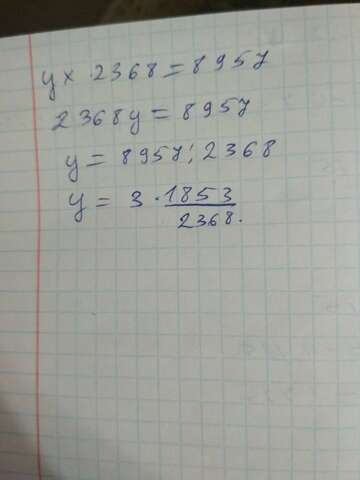 y × 2368 = 8957
2368y = 8957
y = 8957 : 2368
y = 3 · 1853
2368.